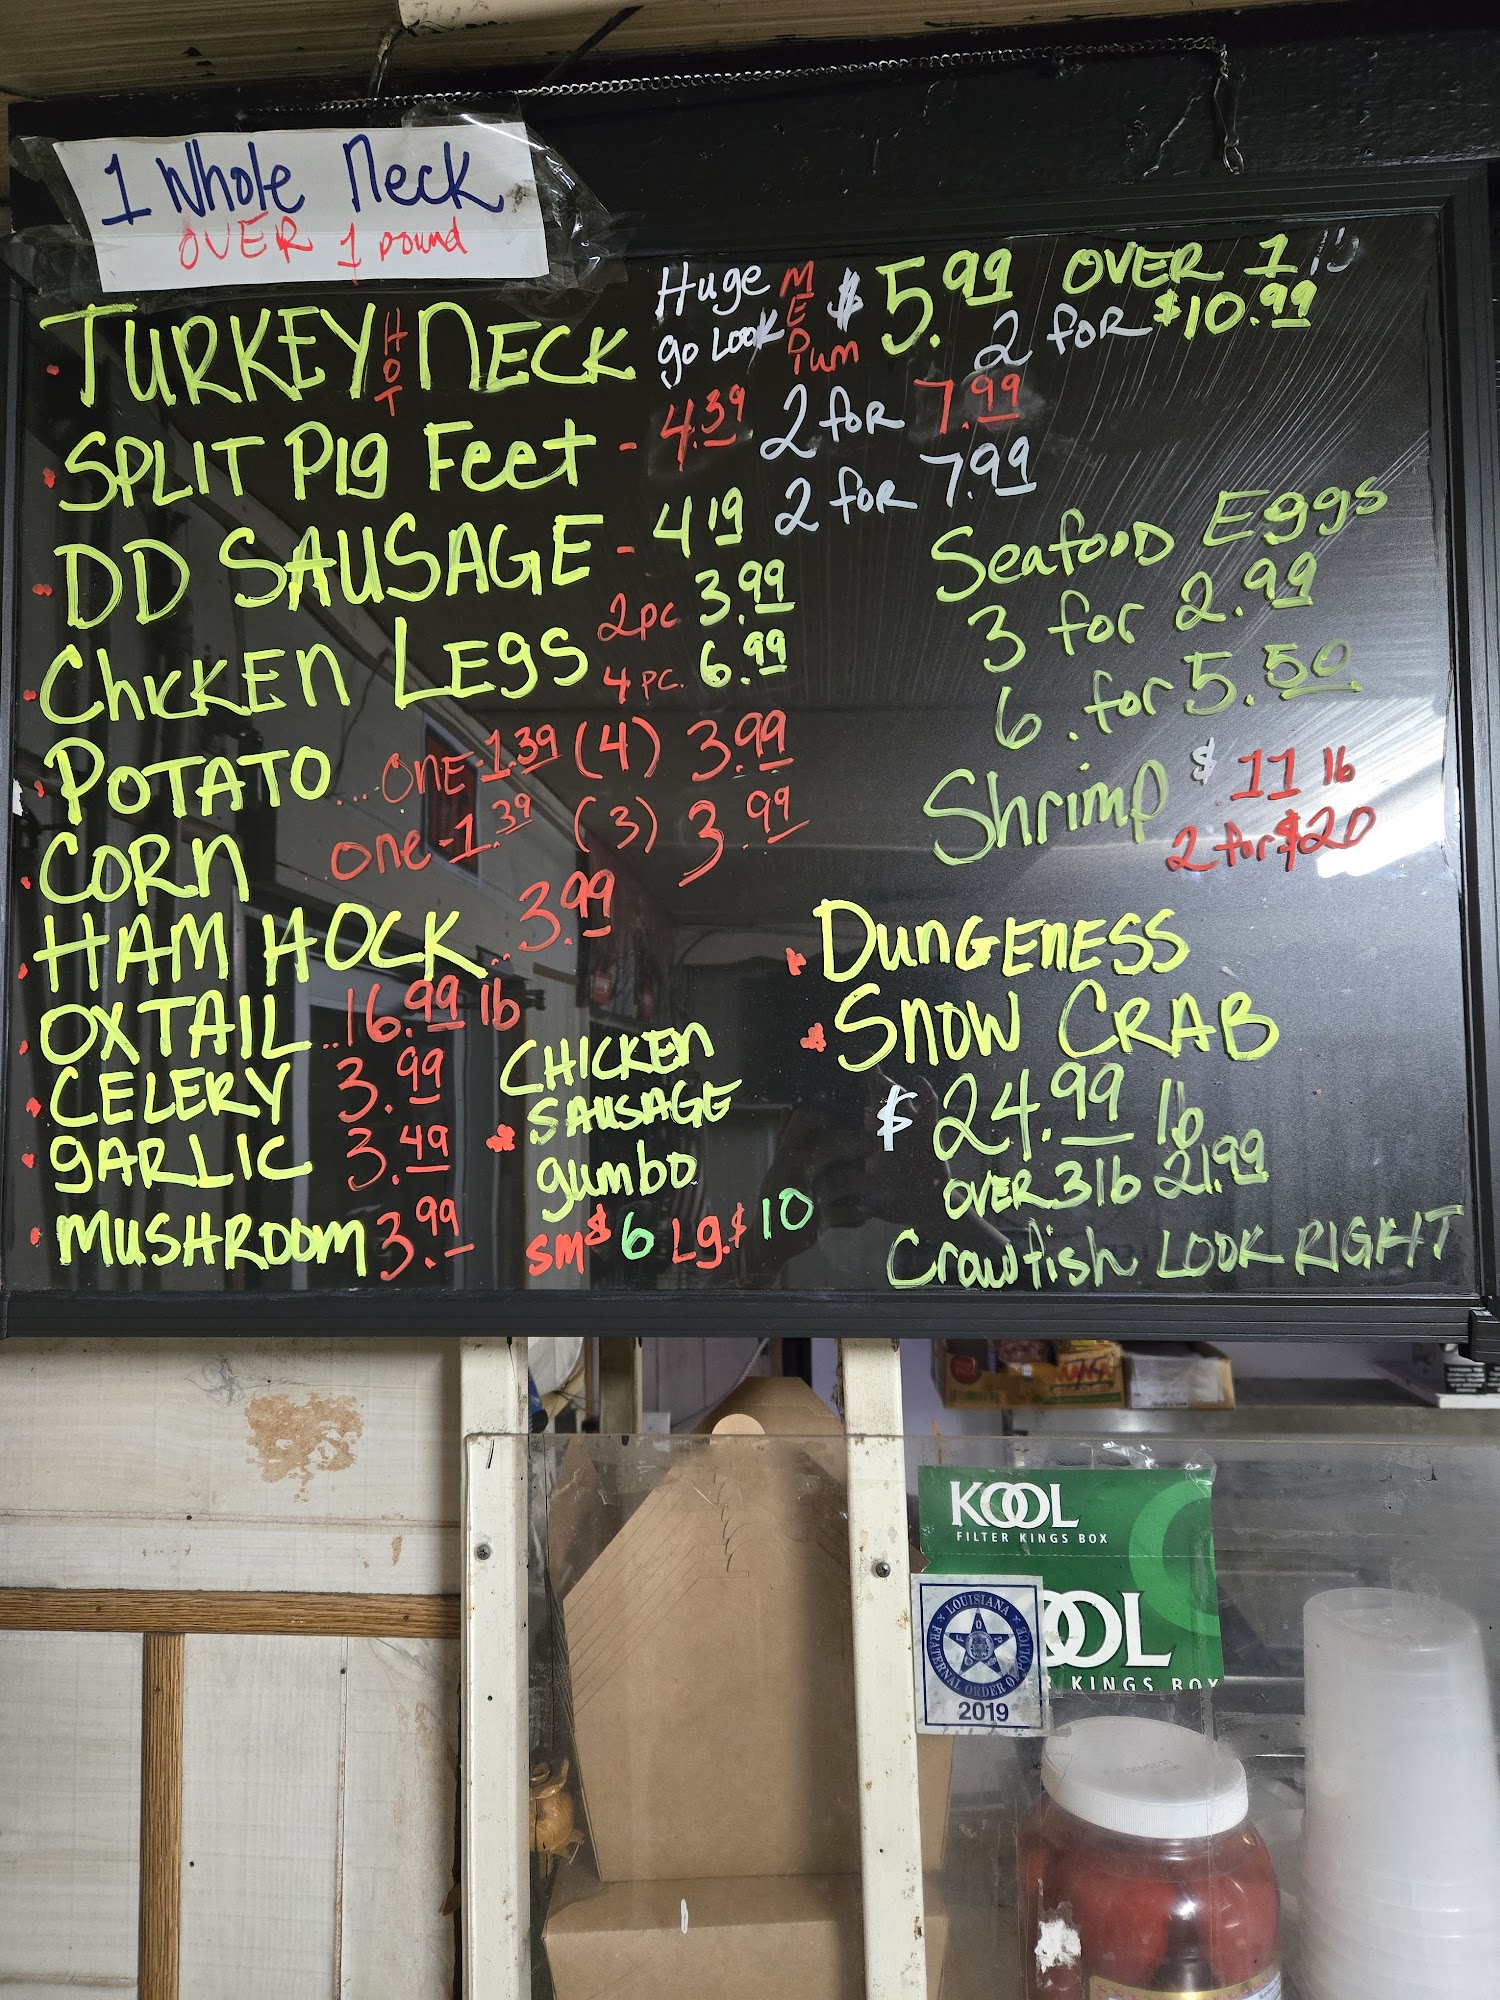 1 Whole Neck
OVER 1 pound
TURKEY HOT NECK Huge go LOOK MEDIum $5.99 OVER 1 lb
2 for $10.99
SPLIT PIg Feet - 4.39 2 for 7.99
DD SAUSAGE - 4.19 2 for 7.99
CHICKEN LEgS 2pc 3.99
4 PC. 6.99
POTATO... ONE-1.39 (4) 3.99
CORN one-1.39 (3) 3.99
HAM HOCK.. 3.99
OXTAIL..16.99 lb
CELERY 3.99
gARLIC 3.49
MUSHROOM 3.99
CHICKEN
SAUSAGE
gumbo
SM $6 Lg. $10
Seafood Eggs
3 for 2.99
6 for 5.50
Shrimp $11 lb
2 for $20
DUNGENESS
SNOW CRAB
$24.99 lb
OVER 3 lb 21.99
Crawfish LOOK RIGHT
KOOL
FILTER KINGS BOX
OOL
ER KINGS BOX
LOUISIANA
FRATERNAL ORDER OF POLICE
FOP
2019